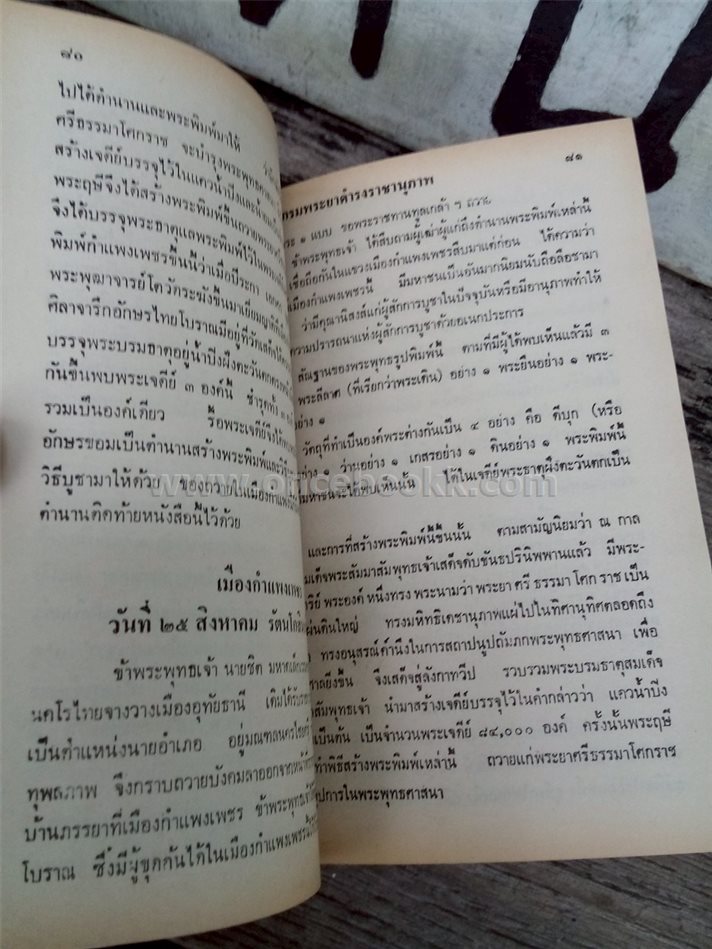 ๘๐
ไปได้ตำนานและพระพิมพ์มาให้
ศรีธรรมาโศกราช จะบำรุงพระพุทธศาสนา
สร้างเจดีย์บรรจุไว้ในแควน้ำปิงและน้ำยม
พระฤษีจึงได้สร้างพระพิมพ์ขึ้นถวายพระยา
จึงได้บรรจุพระธาตุแลพระพิมพ์ไว้ในพระเจดีย์
พิมพ์กำแพงเพชรขึ้นนี้ว่าเมื่อปีระกา เอกศก
พระพุฒาจารย์โตวัดระฆังขึ้นมาเยี่ยมญาติที่เมือง
ศิลาจารึกอักษรไทยโบราณมีอยู่ที่วัดเสด็จได้
บรรจุพระบรมธาตุอยู่น้ำปิงฝั่งตะวันตกตรงหน้า
กันขึ้นพบพระเจดีย์ ๓ องค์นี้ ชำรุดทั้ง ๓
รวมเป็นองค์เดียว รื้อพระเจดีย์จึงได้พบ
อักษรขอมเป็นตำนานสร้างพระพิมพ์และวิธี
วิธีบูชามาให้ด้วย ของถวายในเมืองกำแพงเพชร
ตำนานติดท้ายหนังสือนี้ไว้ด้วย
เมืองกำแพงเพชร
วันที่ ๒๕ สิงหาคม รัตนโกสิน
ข้าพระพุทธเจ้า นายชิต มหาดเล็ก
นคโรไทยจางวางเมืองอุทัยธานี เดิมได้รับ
เป็นตำแหน่งนายอำเภอ อยู่มณฑลนครไชยศรี
ทุพลภาพ จึงกราบถวายบังคมลาออกจากหน้าที่
บ้านภรรยาที่เมืองกำแพงเพชร ข้าพระพุทธเจ้า
โบราณ ซึ่งมีผู้ขุดค้นได้ในเมืองกำแพงเพชร
๘๑
กรมพระยาดำรงราชานุภาพ
พระ ๑ แบบ ขอพระราชทานทูลเกล้า ฯ ถวาย
ข้าพระพุทธเจ้า ได้สืบถามผู้เฒ่าผู้แก่ถึงตำนานพระพิมพ์เหล่านี้
เชื่อถือกันในแขวงเมืองกำแพงเพชรสืบมาแต่ก่อน ได้ความว่า
เมืองกำแพงเพชรนี้ มีมหาชนเป็นอันมากนิยมนับถือลือชามา
ว่ามีคุณานิสงส์แก่ผู้สักการบูชาในปัจจุบันหรือมีอานุภาพทำให้
ความปรารถนาแห่งผู้สักการบูชาด้วยอเนกประการ
สัณฐานของพระพุทธรูปพิมพ์นี้ ตามที่มีผู้ได้พบเห็นแล้วมี ๓
พระลีลาศ (ที่เรียกว่าพระเดิน) อย่าง ๑ พระยืนอย่าง ๑ พระ-
อย่าง ๑
วัตถุที่ทำเป็นองค์พระต่างกันเป็น ๔ อย่าง คือ ดีบุก (หรือ
อย่าง ๑ ว่านอย่าง ๑ เกสรอย่าง ๑ ดินอย่าง ๑ พระพิมพ์นี้
มหาชนจะได้พบเห็นนั้น ได้ในเจดีย์พระธาตุฝั่งตะวันตกเป็น
และการที่สร้างพระพิมพ์นี้ขึ้นนั้น ตามสามัญนิยมว่า ณ กาล
สมเด็จพระสัมมาสัมพุทธเจ้าเสด็จดับขันธปรินิพพานแล้ว มีพระ-
พระองค์ หนึ่งทรง พระนามว่า พระยา ศรี ธรรมา โศก ราช เป็น
แผ่นดินใหญ่ ทรงมหิทธิเดชานุภาพแผ่ไปในทิศานุทิศตลอดถึง
ทรงอนุสรณ์คำนึงในการสถาปนูปถัมภกพระพุทธศาสนา เพื่อ
ยิ่งขึ้น จึงเสด็จสู่ลังกาทวีป รวบรวมพระบรมธาตุสมเด็จ
สัมพุทธเจ้า นำมาสร้างเจดีย์บรรจุไว้ในคำกล่าวว่า แควน้ำปิง
เป็นต้น เป็นจำนวนพระเจดีย์ ๘๔,๐๐๐ องค์ ครั้งนั้นพระฤษี
ทำพิธีสร้างพระพิมพ์เหล่านี้ ถวายแก่พระยาศรีธรรมาโศกราช
ปการในพระพุทธศาสนา
www.oncebookk.com